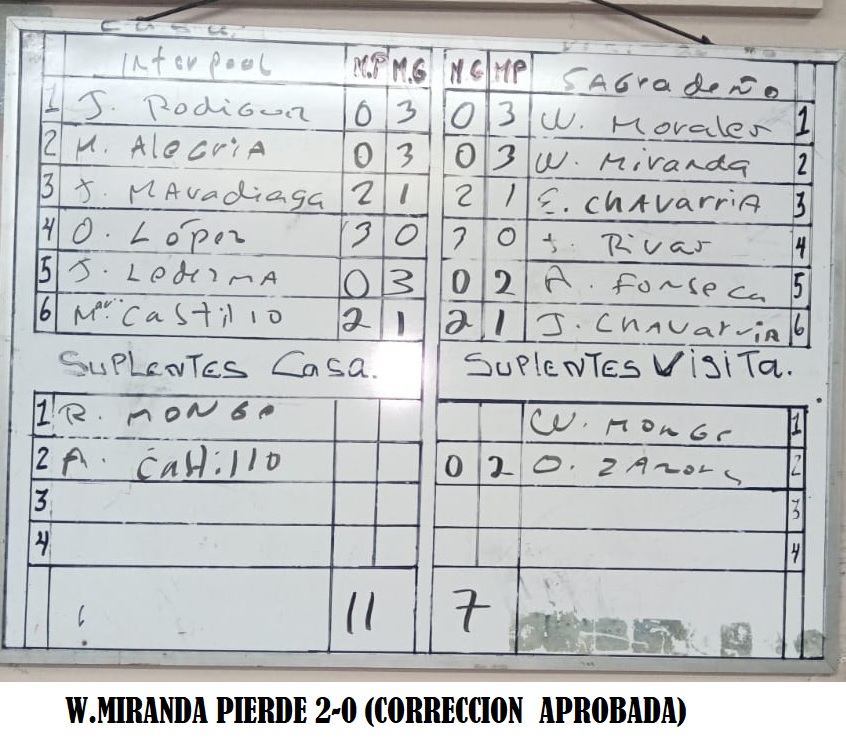 Casa.
Inter pool M.P M.G N G MP SAGradeño
1 J. Rodiguez 0 3 0 3 W. Morales 1
2 M. AleGriA 0 3 0 3 W. Miranda 2
3 J. MAradiaga 2 1 2 1 E. CHAVarriA 3
4 O. López 3 0 3 0 J. Rivas 4
5 J. LedezmA 0 3 0 2 A. Fonseca 5
6 Mar. Castillo 2 1 2 1 J. CHAVarriA 6
SUPLENTES Casa. SUPLENTES VisiTa.
1 R. MONGe W. MonGe 1
2 A. Castillo 0 2 O. ZAmora 2
3 3
4 4
11 7
W.MIRANDA PIERDE 2-0 (CORRECCION APROBADA)